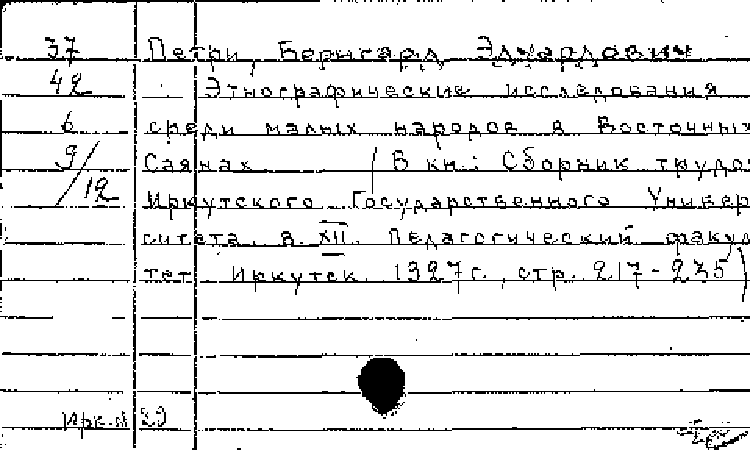 37 Петри, Бернгард Эдуардович
42 Этнографические исследования
6 среди малых народов в Восточных
9/12 Саянах (В кн.: Сборник трудов
Иркутского Государственного Универ
ситета, в. XII. Педагогический факуль
тет Иркутск 1927 г., стр. 217-235)
Ирк. 29